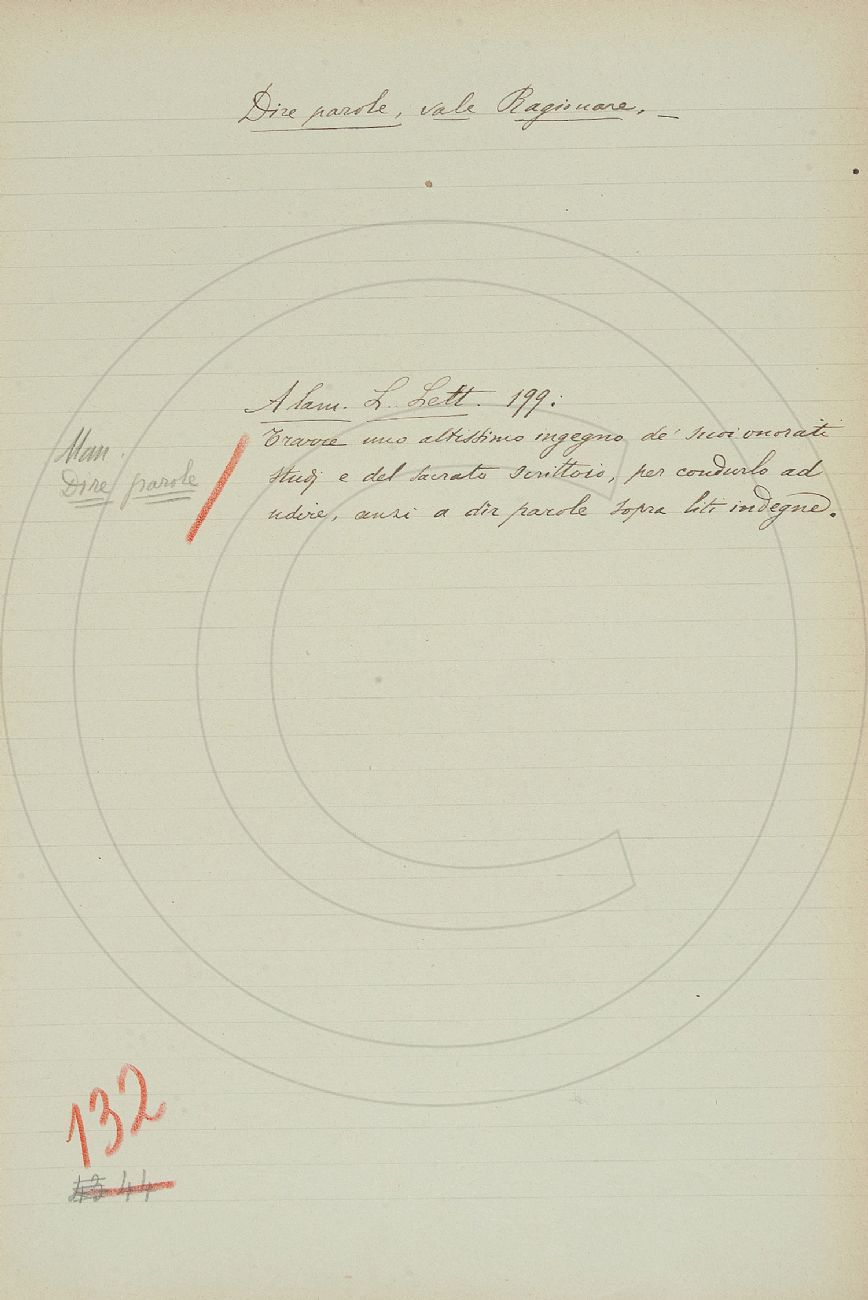 Dire parole, vale Ragionare. —
Alam. L. Lett. 199:
Trarre uno altissimo ingegno de' suoi onorati
Man.
studj e del sacrato scrittoio, per condurlo ad
Dire parole
udire, anzi a dir parole sopra liti indegne.
132
44